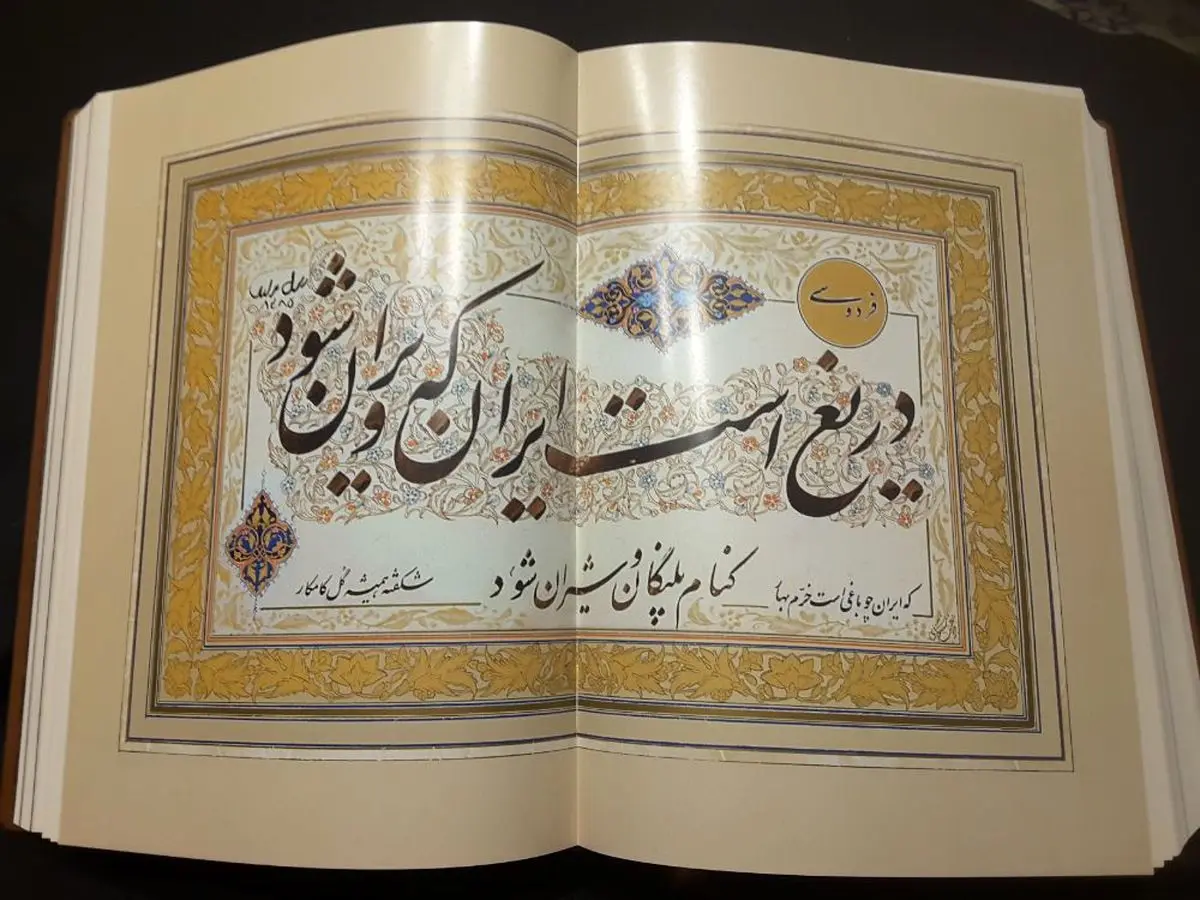 فردوسی
دریغ است ایران که ویران شود
کنام پلنگان و شیران شود
که ایران چو باغی است خرّم بهار
شکفته همیشه گل کامکار
۱۳۸۵